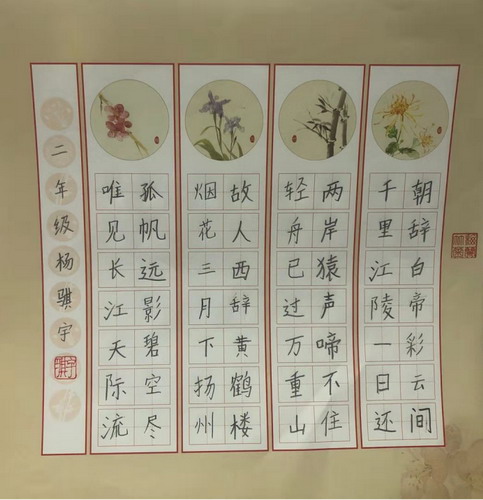 朝辞白帝彩云间
千里江陵一日还
两岸猿声啼不住
轻舟已过万重山
故人西辞黄鹤楼
烟花三月下扬州
孤帆远影碧空尽
唯见长江天际流
二年级杨骐宇